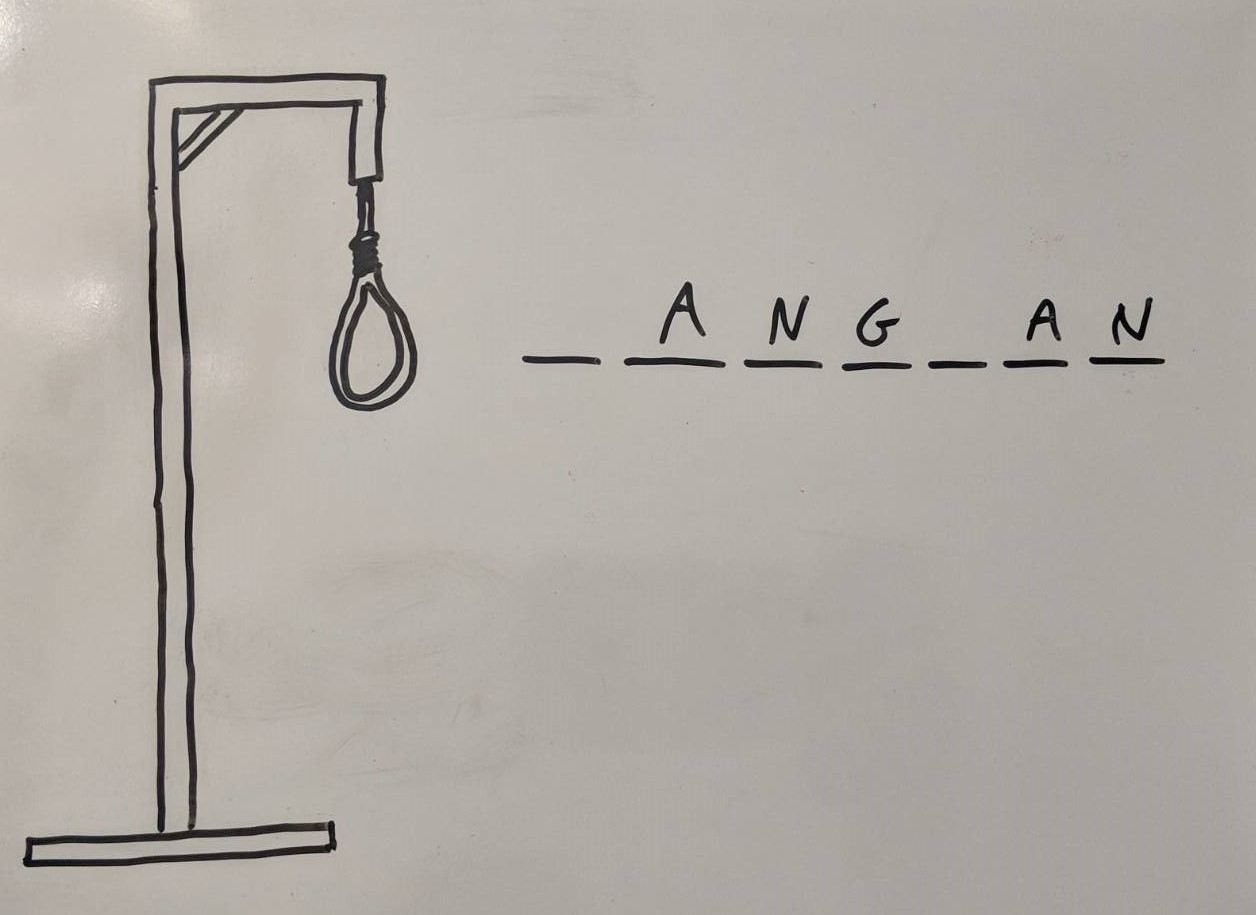 _ A N G _ A N